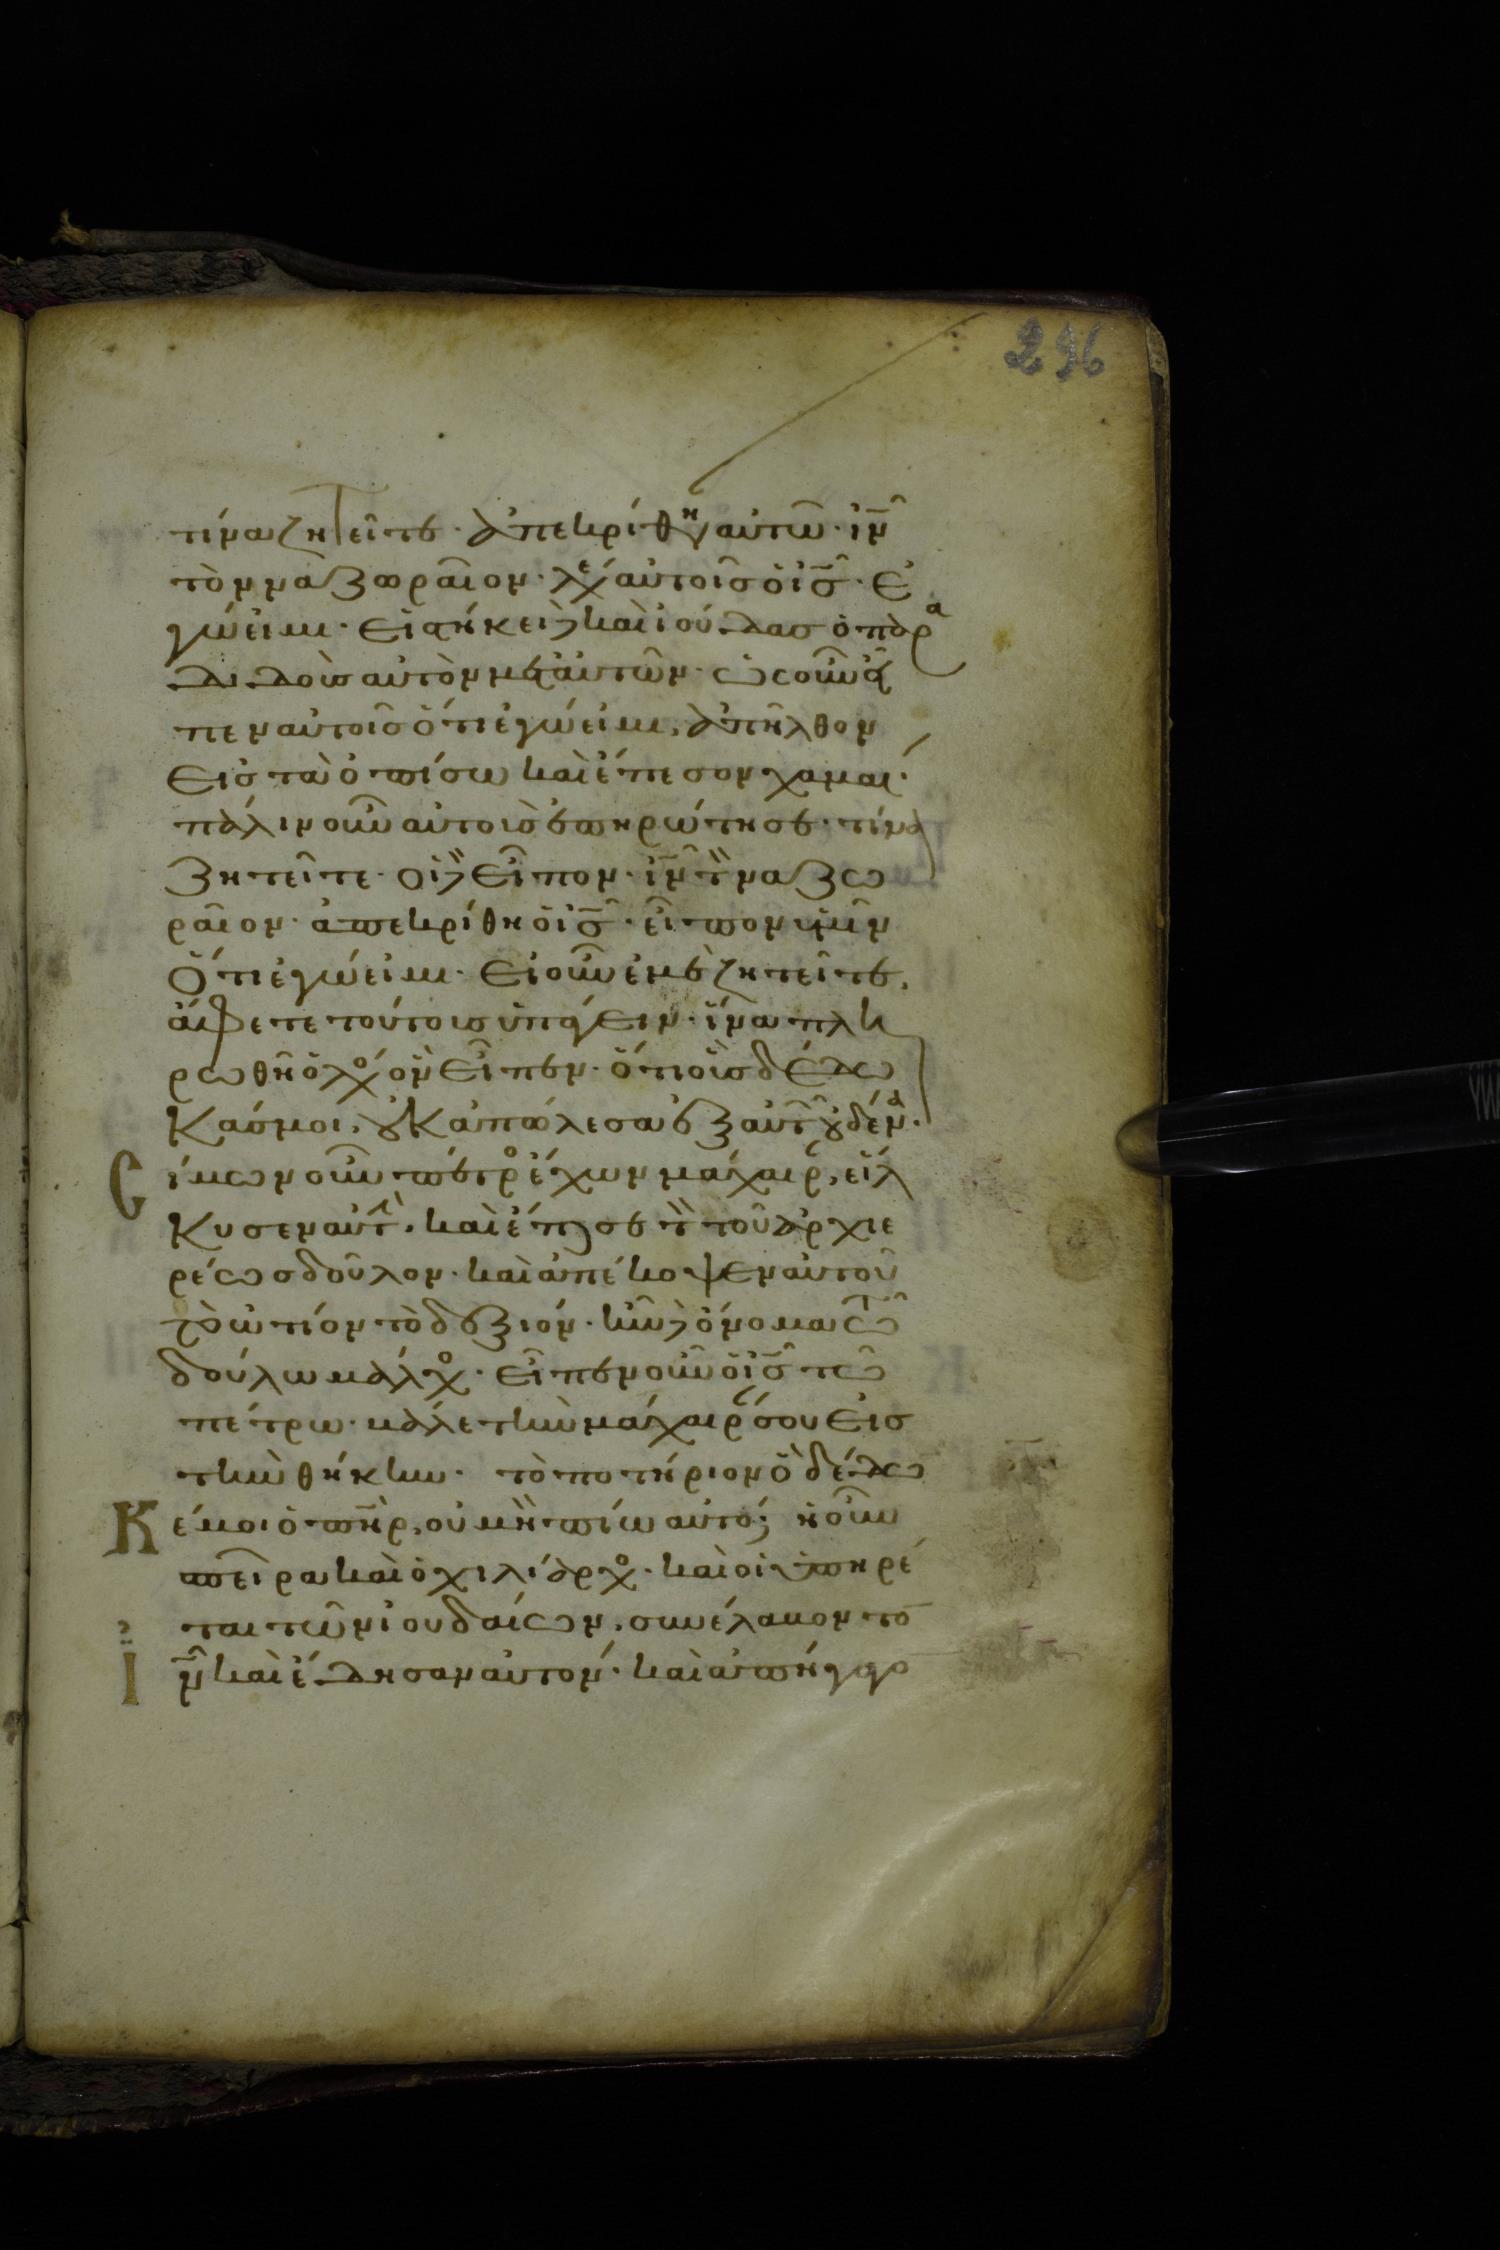 296
τίνα ζητεῖτε· ἀπεκρίθη αὐτῶ· ἰν̅
τὸν ναζωραῖον· λέγ αὐτοῖς ὁ ἰς̅· ἐ
γώ εἰμι· εἰστήκει δ καὶ ἰούδας ὁ παρα
διδοὺς αὐτὸν μετ αὐτῶν· ὡς οὖν εἶ
πεν αὐτοῖς ὅτι ἐγώ εἰμι, ἀπῆλθον
εἰς τὰ ὀπίσω καὶ ἔπεσον χαμαί·
πάλιν οὖν αὐτοὶς ἐπηρώτησε· τίνα
ζητεῖτε· οἱ δ εἶπον· ἰν̅ τ̀ ναζω
ραῖον· ἀπεκρίθη ὁ ἰς̅· εἶπον ὑμῖν
ὅτι ἐγώ εἰμι· εἰ οὖν ἐμὲ ζητεῖτε,
ἄφετε τούτοις ὑπάγειν· ἵνα πλη
ρωθῆ ὁ λόγο ὃν εἶπεν· ὅτι οὓς δέδω
κάς μοι, οὐκ ἀπώλεσα ἐξ αὐτ οὐδένα·
Σίμων οὖν πέτρο ἔχων μάχαιρ, εἵλ
κυσεν αὐτ· καὶ ἔπαισε τ̀ τοῦ ἀρχιε
ρέως δοῦλον· καὶ ἀπέκοψεν αὐτοῦ
τὸ ὠτίον τὸ δεξιόν· ἦν δ ὄνομα τῶ
δούλω μάλχο· εἶπεν οὖν ὁ ἰς̅ τῶ
πέτρω· βάλε τὴν μάχαιρ σου εἰς
τὴν θήκην· τὸ ποτήριον ὃ δέδω
κέ μοι ὁ πη̅ρ, οὐ μὴ πίω αὐτό; ἡ οὖν
σπεῖρα καὶ ὁ χιλίαρχο· καὶ οἱ ὑπηρέ
ται τῶν ἰουδαίων, συνέλαβον τὸ
ἰν̅ καὶ ἔδησαν αὐτόν· καὶ ἀπήγαγο